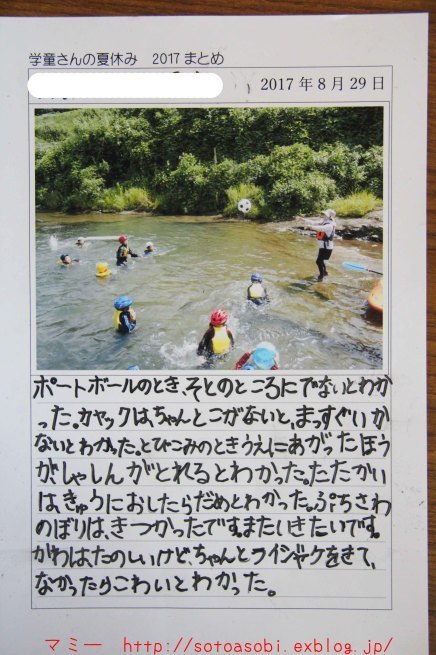 学童さんの夏休み 2017まとめ
2017年8月29日
ポートボールのとき、そとのところにでないとわか
った。カヤックは、ちゃんとこがないと、まっすぐいか
ないとわかった。とびこみのときうえにあがったほう
が、しゃしんがとれるとわかった。たたかい
は、きゅうにおしたらだめとわかった。ぷちさわ
のぼりは、きつかったです。またいきたいです。
がわは、たのしいけど、ちゃんとライジャケをきて、
なかったらこわいとわかった。
マミー http://sotoasobi.exblog.jp/